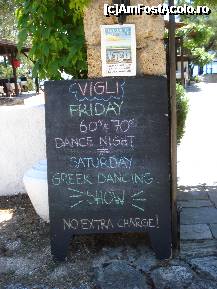 (c) AmFostAcolo.ro
VIGLI
FRIDAY
60s 70s
DANCE NIGHT
SATURDAY
GREEK DANCING
SHOW
NO EXTRA CHARGE!